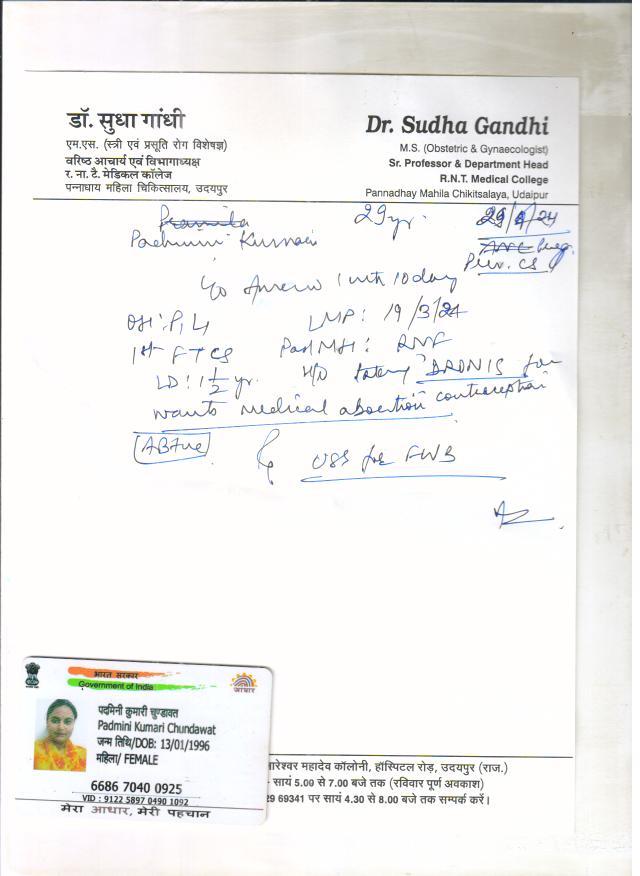 डॉ. सुधा गांधी
एम.एस. (स्त्री एवं प्रसूति रोग विशेषज्ञ)
वरिष्ठ आचार्य एवं विभागाध्यक्ष
र. ना. टै. मेडिकल कॉलेज
पन्नाधाय महिला चिकित्सालय, उदयपुर
Dr. Sudha Gandhi
M.S. (Obstetric & Gynaecologist)
Sr. Professor & Department Head
R.N.T. Medical College
Pannadhay Mahila Chikitsalaya, Udaipur
29 yr.
Kumari
Prev. CS
1 mth 10 day
LMP: 19/3/24
1st FTCS Past MH: RNF
LD: 1 1/2 yr. H/O taking for
wants medical abortion contraception
USS for FWB
भारत सरकार
Government of India
आधार
पदमिनी कुमारी चुण्डावत
Padmini Kumari Chundawat
जन्म तिथि/DOB: 13/01/1996
महिला/ FEMALE
6686 7040 0925
VID : 9122 5897 0490 1092
मेरा आधार, मेरी पहचान
महादेव कॉलोनी, हॉस्पिटल रोड़, उदयपुर (राज.)
सायं 5.00 से 7.00 बजे तक (रविवार पूर्ण अवकाश)
69341 पर सायं 4.30 से 8.00 बजे तक सम्पर्क करें।